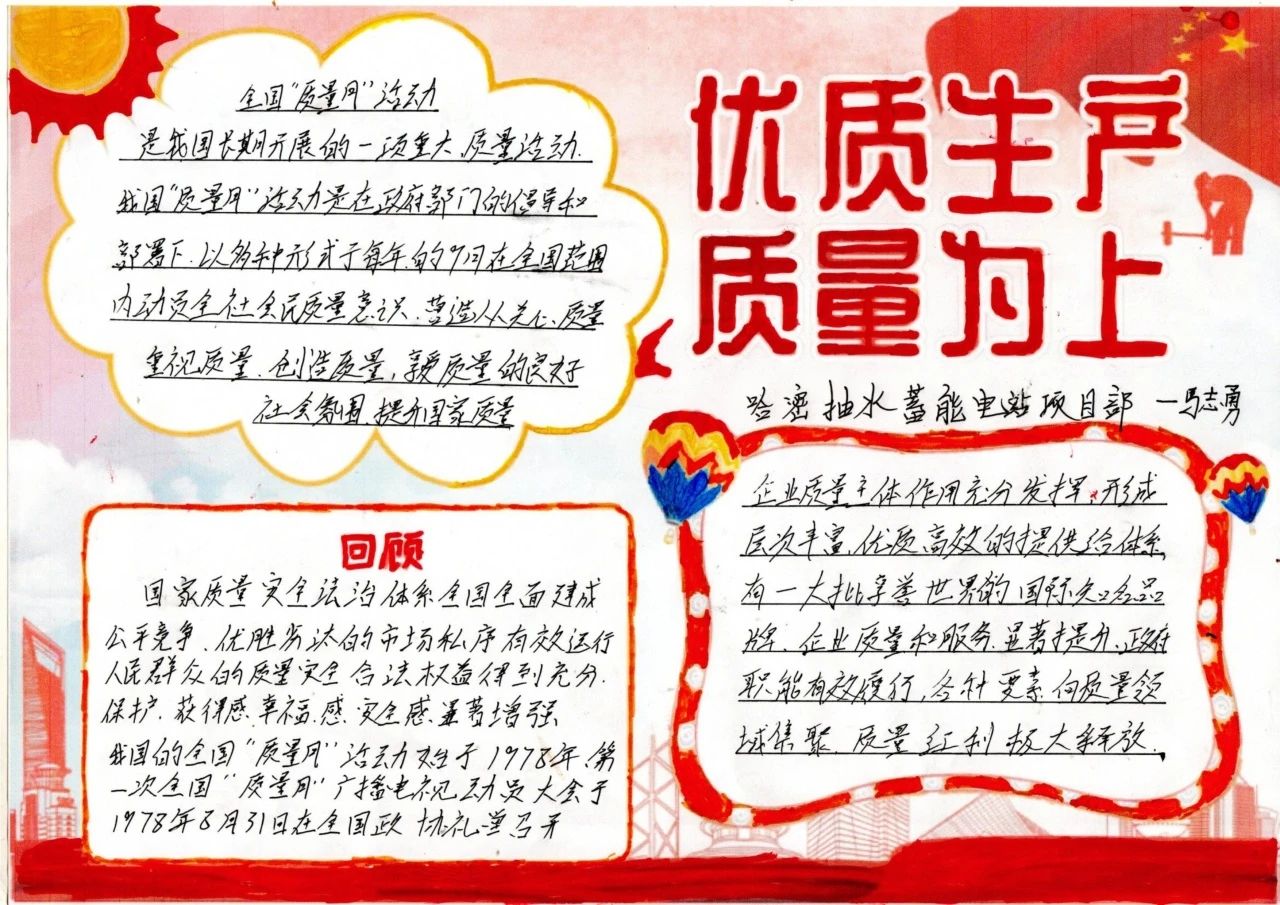 优质生产
质量为上
哈密抽水蓄能电站项目部 一马志勇
全国"质量月"活动
是我国长期开展的一项重大质量活动.
我国"质量月"活动是在政府部门的倡导和
部署下.以多种形式于每年的9月在全国范围
内动员全社会民质量意识、营造人人关心质量
重视质量.创造质量,享受质量的良好
社会氛围.提升国家质量
回顾
国家质量安全法治体系全国全面建成
公平竞争、优胜劣汰的市场秩序有效运行
人民群众的质量安全合法权益得到充分.
保护.获得感.幸福.感.安全感.显著增强.
我国的全国"质量月"活动始于1978年.第
一次全国"质量月"广播电视动员大会于
1978年8月31日在全国政协礼堂召开
企业质量主体作用充分发挥,形成
层次丰富,优质高效的提供给体系,
有一大批享誉世界的国际知名品
牌.企业质量和服务.显著提升.政府
职能有效履行,各种要素向质量领
域集聚.质量红利极大释放.